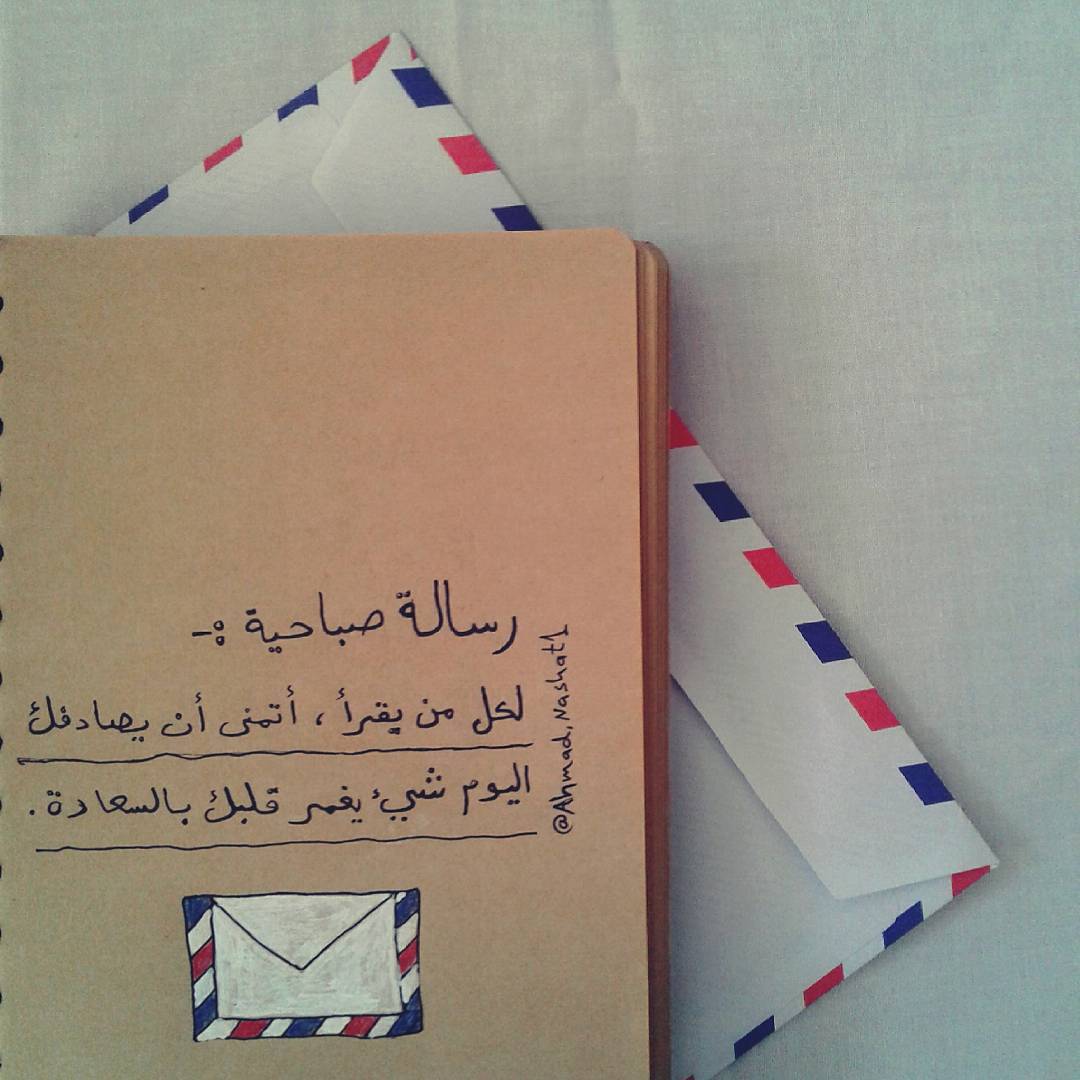 رسالة صباحية :-
لكل من يقرأ ، أتمنى أن يصادفك
اليوم شيء يغمر قلبك بالسعادة .
@Ahmad,Nashat1